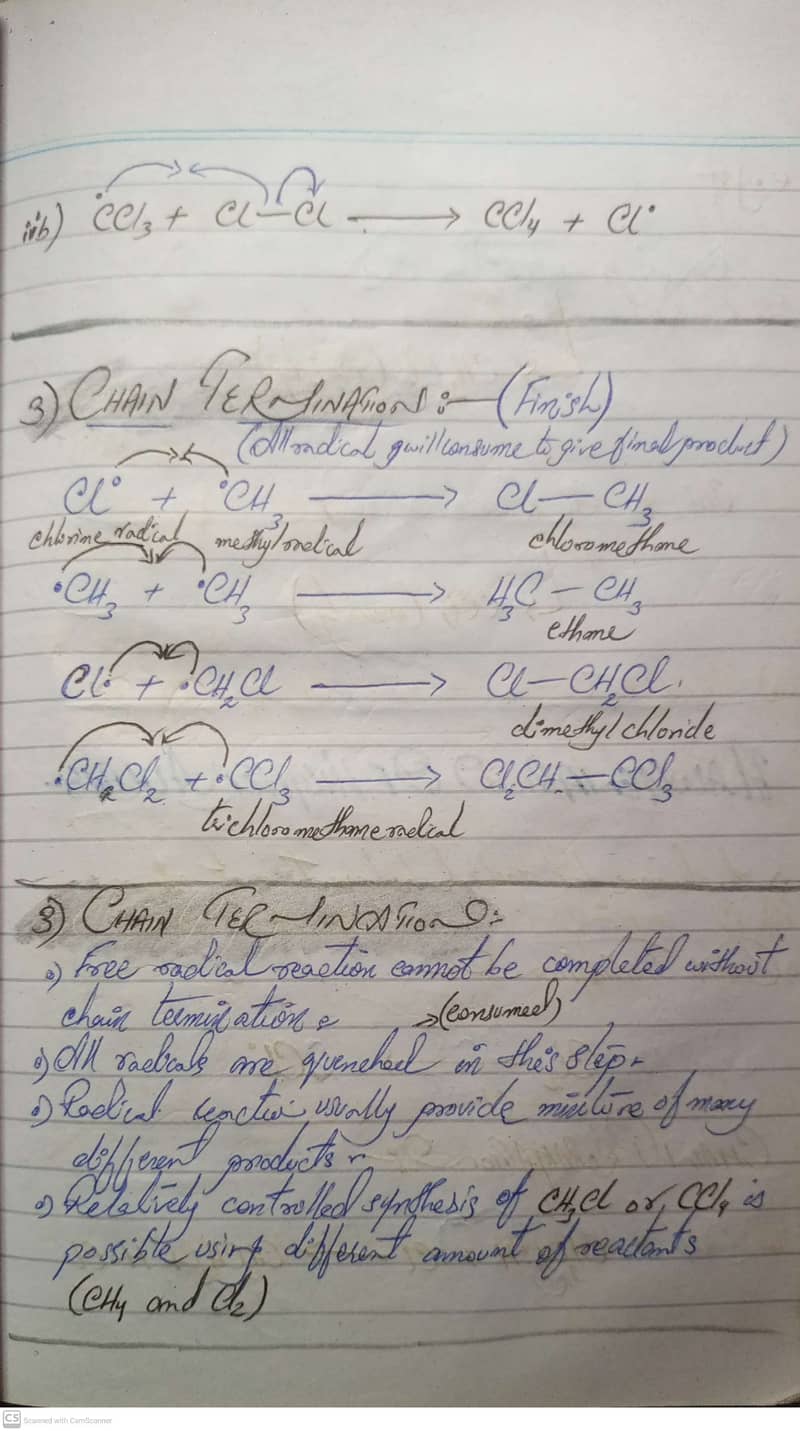 ivb) •CCl3 + Cl—Cl ⟶ CCl4 + Cl•
3) CHAIN TERMINATION :— (Finish)
(All radical will consume to give final product)
Cl• + •CH3 ⟶ Cl—CH3
chlorine radical methyl radical chloromethane
•CH3 + •CH3 ⟶ H3C—CH3
ethane
Cl• + •CH2Cl ⟶ Cl—CH2Cl.
dimethyl chloride
•CH2Cl2 + •CCl3 ⟶ Cl2CH—CCl3
trichloromethane radical
3) CHAIN TERMINATION:-
Free radical reaction cannot be completed without
chain termination
→(consumed)
All radicals are quenched in this step
Radical usually provide mixture of many
different products
Relatively controlled synthesis of CH3Cl or, CCl4 is
possible using different amount of reactants
(CH4 and Cl2)
CS Scanned with CamScanner